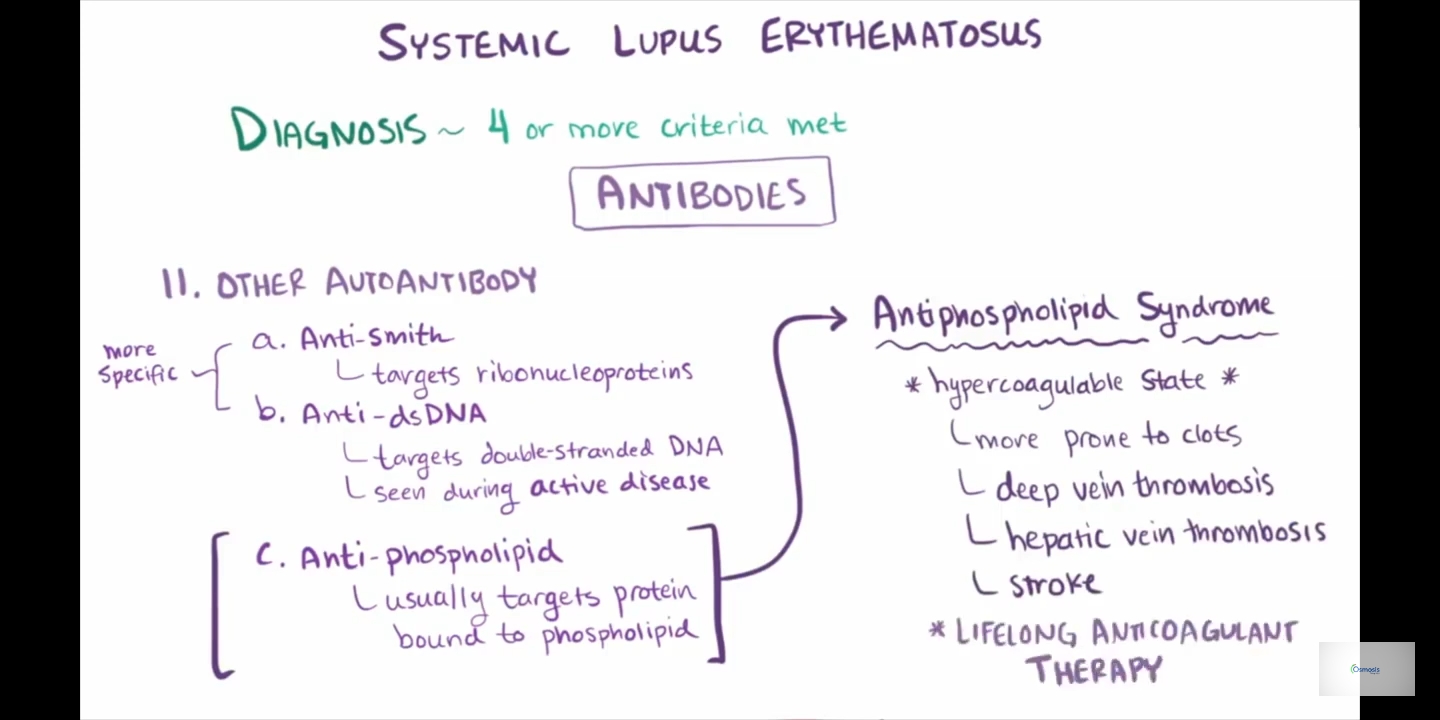 SYSTEMIC LUPUS ERYTHEMATOSUS
DIAGNOSIS ~ 4 or more criteria met
ANTIBODIES
11. OTHER AUTOANTIBODY
more
specific
a. Anti-smith
targets ribonucleoproteins
b. Anti-dsDNA
targets double-stranded DNA
seen during active disease
c. Anti-phospholipid
usually targets protein
bound to phospholipid
Antiphospholipid Syndrome
* hypercoagulable state *
more prone to clots
deep vein thrombosis
hepatic vein thrombosis
stroke
* LIFELONG ANTICOAGULANT
THERAPY
Osmosis